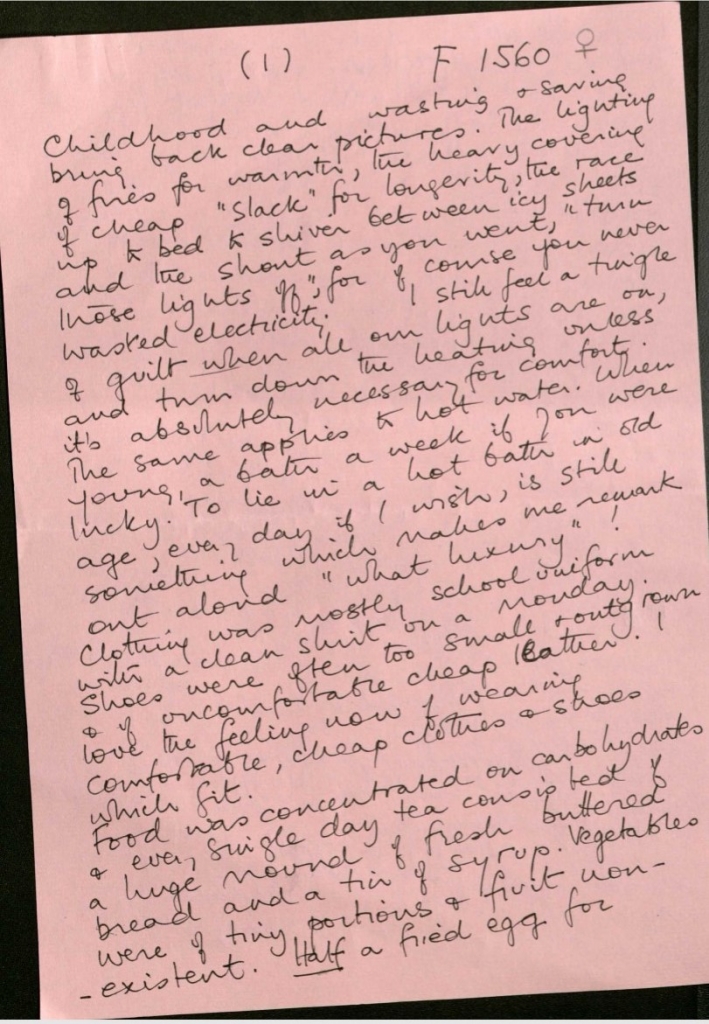 (1) F 1560 ♀
Childhood and wasting & saving
bring back clear pictures. The lighting
of fires for warmth, the heavy covering
of cheap "slack" for longevity, the race
up to bed to shiver between icy sheets
and the shout as you went, "turn
those lights off", for of course you never
wasted electricity. I still feel a tingle
of guilt when all our lights are on,
and turn down the heating unless
it's absolutely necessary for comfort.
The same applies to hot water. When
young, a bath a week if you were
lucky. To lie in a hot bath in old
age, every day if I wish, is still
something which makes me remark
out aloud "what luxury"!
Clothing was mostly school uniform
with a clean shirt on a Monday.
Shoes were often too small & outgrown
& of uncomfortable cheap leather. I
love the feeling now of wearing
comfortable, cheap clothes & shoes
which fit.
Food was concentrated on carbohydrates
& every single day tea consisted of
a huge mound of fresh buttered
bread and a tin of syrup. Vegetables
were of tiny portions & fruit non-
-existent. Half a fried egg for